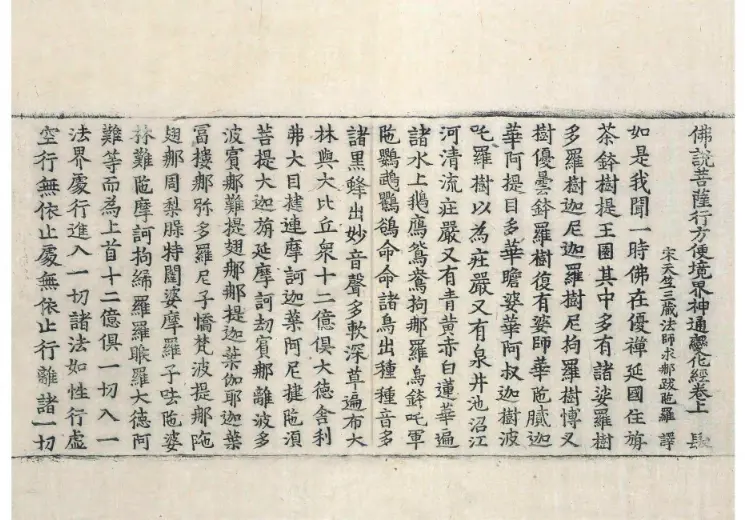 佛說菩薩行方便境界神通變化經卷上
宋天竺三藏法師求那跋陁羅 譯
如是我聞一時佛在優禪延國住旃
茶鉢樹提王園其中多有諸娑羅樹
多羅樹迦尼迦羅樹尼拘羅樹博叉
樹優曇鉢羅樹復有婆師華陁膩迦
華阿提目多華瞻婆華阿叔迦樹波
吒羅樹以為莊嚴又有泉井池沼江
河清流莊嚴又有青黃赤白蓮華遍
諸水上鵝鴈鴛鴦拘那羅鳥鉢吒軍
陁鸚鵡鸜鵒命命諸鳥出種種音多
諸黑蜂出妙音聲多軟深草遍布大
林與大比丘衆十二億俱大德舍利
弗大目揵連摩訶迦葉阿尼揵陁湏
菩提大迦旃延摩訶劫賓那離波多
波賓那難提翅那那提迦葉伽耶迦葉
冨樓那弥多羅尼子憍梵波提那陁
翅那周梨腂特闍婆摩羅子哇陁婆
林難陁摩訶拘絺羅羅睺羅大德阿
難等而為上首十二億俱一切入一
法界處行進入一切諸法如性行虛
空行無依止處無依止行離諸一切